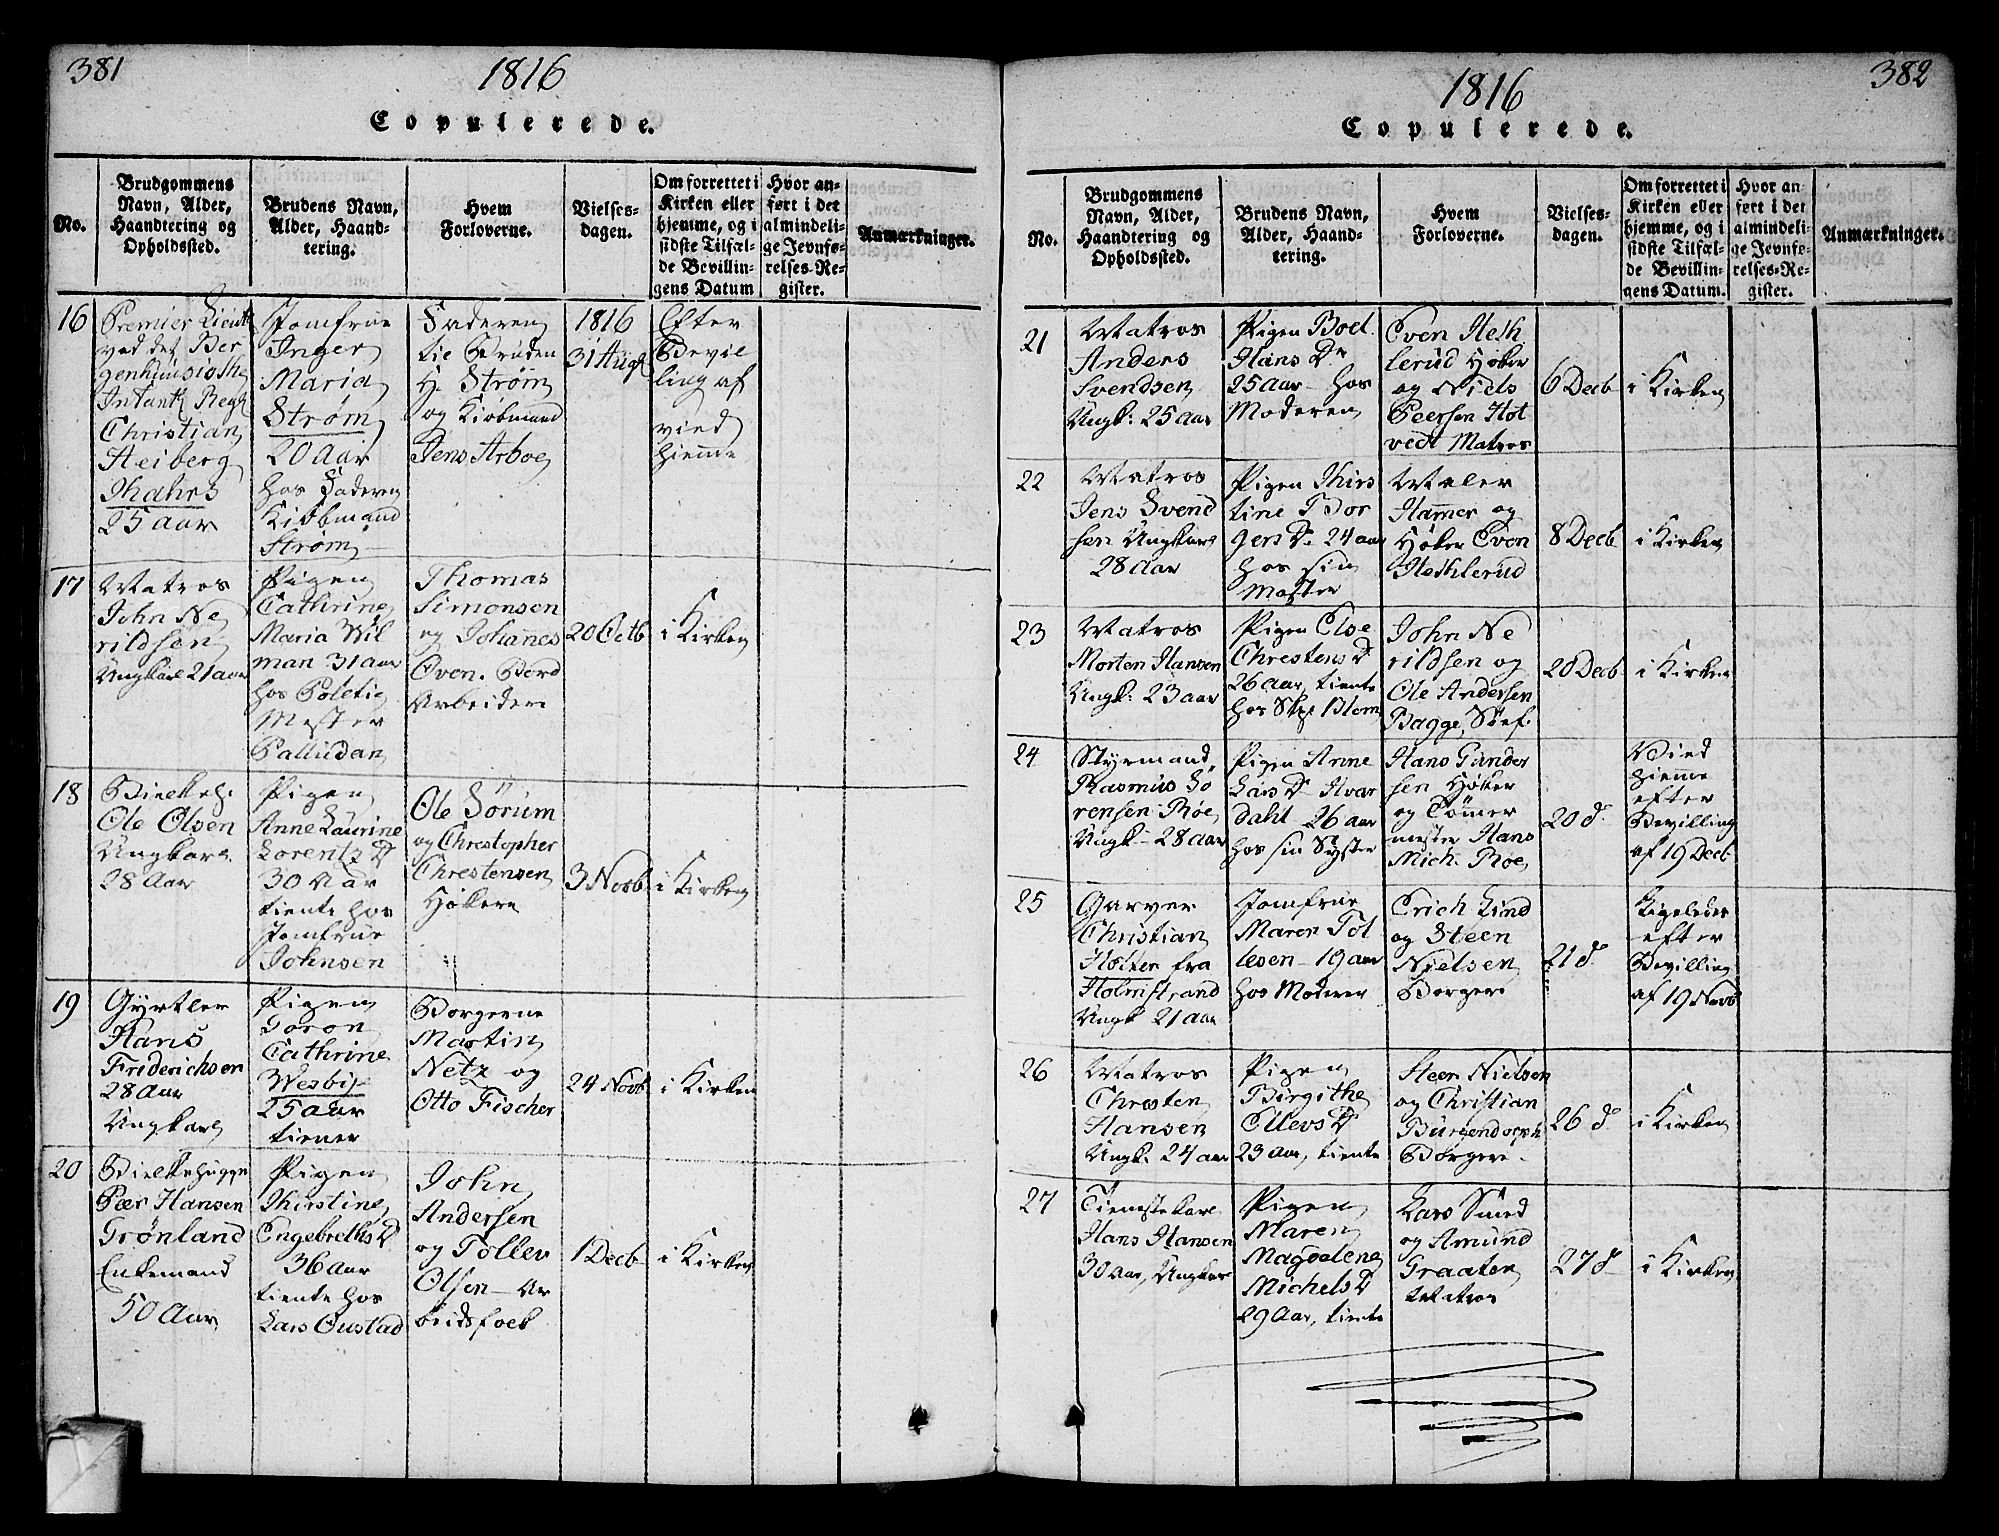 381
1816
Copulerede.
No.
Brudgommens
Navn, Alder,
Haandtering og
Opholdssted.
Brudens Navn,
Alder, Haand-
tering.
Hvem
Forloverne.
Vielses-
dagen.
Om forrettet i
Kirken eller
hjemme, og i
sidste Tilfæl-
de Bevillin-
gens Datum
Hvor an-
ført i det
almindeli-
ge Jevnfø-
relses-Re-
gister.
Anmærkninger.
16
Premier Lieut
ved det Ber
genhuusiske
Infant Reg
Christian
Heiberg
Thahrs
25 Aar
Jomfrue
Inger
Maria
Strøm
20 Aar
hos Faderen
Kiøbmand
Strøm
Faderen
til Bruden
H. Strøm
og Kiøbmand
Jens Arboe
1816
31 Aug
Efter
Bevil
ling af
vied
hiemme
17
Matros
John Ne
rildsen
Ungkarl 21 aar
Pigen
Cathrine
Maria Wil
man 31 aar
hos Politie
Mester
Palludan
Thomas
Simonsen
og Johannes
Oven. Bord
Arbeidere
20 Octb
i Kirken
18
Ole Olsen
Ungkarl
28 Aar
Pigen
Anne Laurine
Lorentz D
30 Aar
tiente hos
Jomfrue
Johnsen
Ole Sörum
og Christopher
Christensen
Høkere
3 Novb
i Kirken
19
Gyrtler
Hans
Friderichsen
28 Aar
Ungkarl
Pigen
Goron
Cathrine
Wesbye
25 aar
tiener
Borgerne
Martin
Netz og
Otto Fischer
24 Novb
i Kirken
20
Bielkehugger
Pær Hansen
Grønland
Enkemand
50 Aar
Pigen
Thirstine
Engebreths D
36 aar
tiente hos
Lars Oustad
John
Andersen
og Tollev
Olsen - Ar
beidsfolk
1 Decb
i Kirken
382
1816
Copulerede.
No.
Brudgommens
Navn, Alder,
Haandtering og
Opholdssted.
Brudens Navn,
Alder, Haand-
tering.
Hvem
Forloverne.
Vielses-
dagen.
Om forrettet i
Kirken eller
hjemme, og i
sidste Tilfæl-
de Bevillin-
gens Datum.
Hvor an-
ført i det
almindeli-
ge Jevnfø-
relses-Re-
gister.
Anmærkninger.
21
Matros
Anders
Svendsen
Ungk: 25 aar
Pigen Boel
Hans Dr
25 aar - hos
Moderen
Even Heth
lerud Høker
og Niels
Peersen Hot
vedt Matros
6 Decb
i Kirken
22
Matros
Jens Svend
sen Ungkarl
28 Aar
Pigen Thirs
tine Bor
gers D. 24 aar
hos sin
Moster
Maler
Hammer og
Høker Even
Hethlerud
8 Decb
i Kirken
23
Matros
Morten Hansen
Ungk: 23 aar
Pigen Else
Chrestens D
26 aar, tiente
hos Skp Blom
John Ne
rildsen og
Ole Andersen
Bagge, Søef.
20 Decb
i Kirken
24
Styrmand
Rasmus Sø
rensen Røe,
Ungk - 28 aar
Pigen Anne
Lars D Hvar
dahl 26 aar
hos sin Syster
Hans Gunder
sen Høker
og Tømer
mester Hans
Mich. Røe
20 d.
Vied
hiemme
efter
Bevilling
af 19 Decb
25
Garver
Christian
Holter fra
Holmstrand
Ungk 21 aar
Jomfrue
Maren Tol
lesen - 19 aar
hos Moderen
Erich Lind
og Steen
Nielsen
Borgere
21 d.
Ligeledes
efter
Bevilling
af 19 Novb
26
Matros
Chresten
Hansen
Ungk. 24 aar
Pigen
Birgithe
Ellevs D
23 aar, tiente
Steen Nielsen
og Christian
Burgendorph
Borgere
26 d.
i Kirken
27
Tienestekarl
Hans Hansen
30 aar, Ungkarl
Pigen
Maren
Magdalene
Michels D
29 aar, tiente
Lars Smed
og Amund
Graaten
Matros
27 d
i Kirken